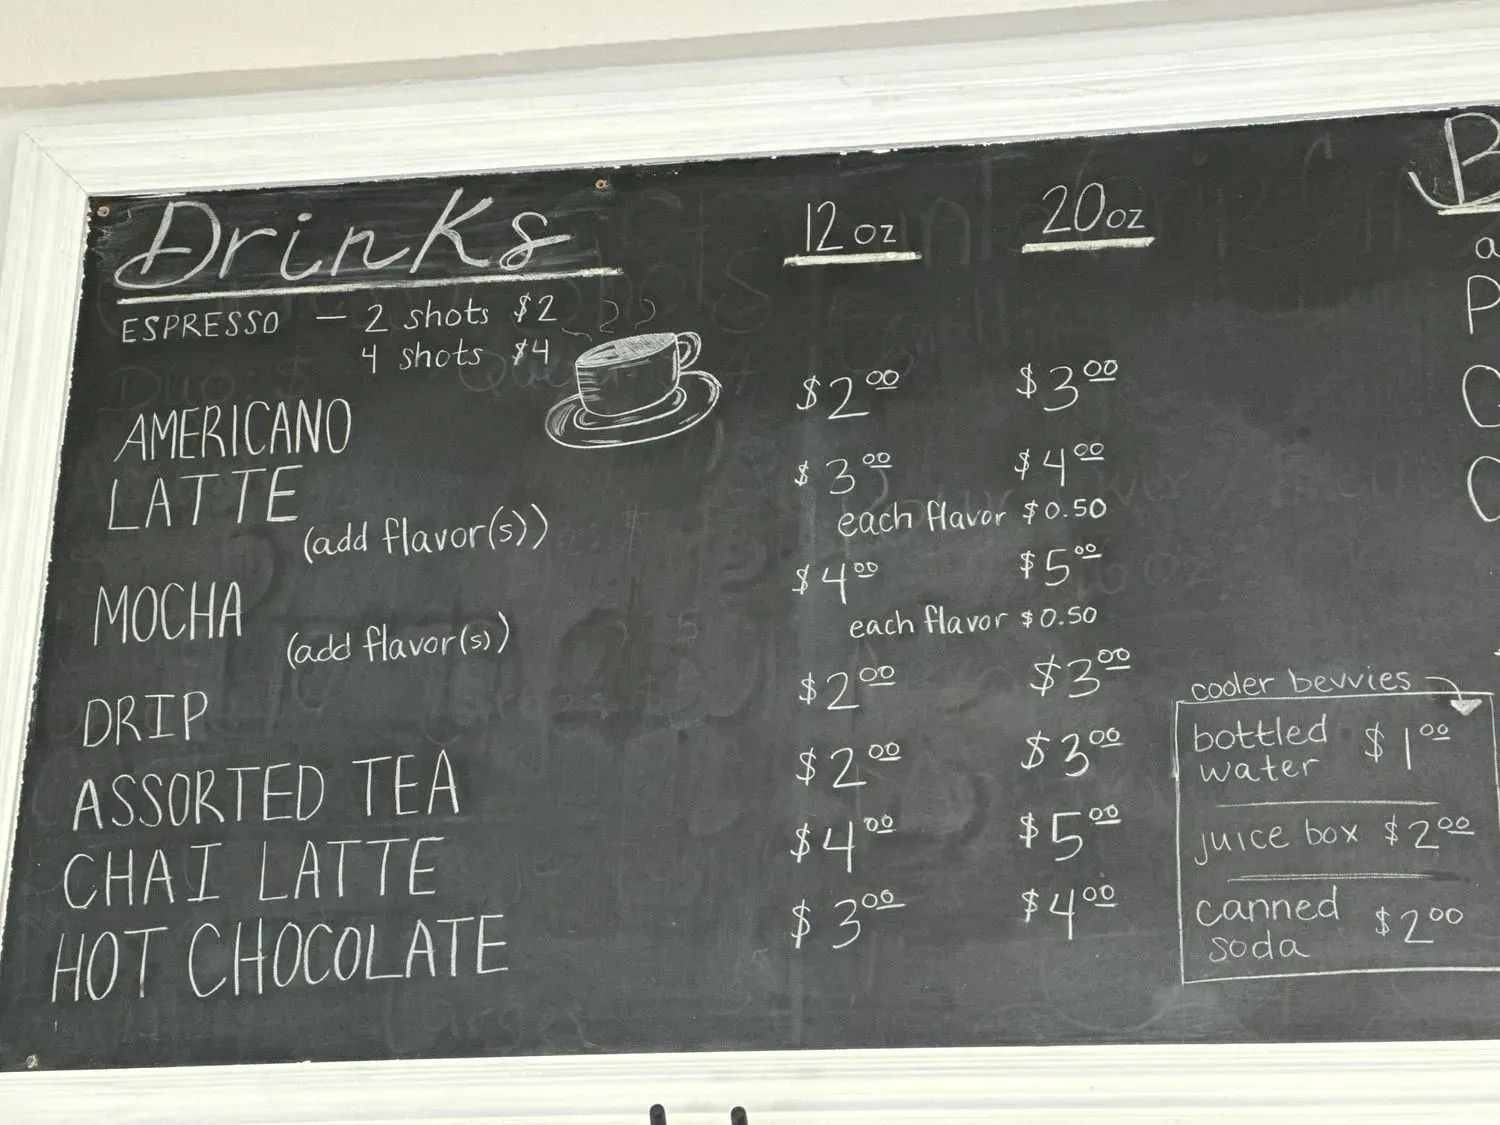 Drinks 12 oz 20 oz
ESPRESSO — 2 shots $2
4 shots $4
AMERICANO $2.00 $3.00
LATTE $3.00 $4.00
(add flavor(s)) each flavor $0.50
MOCHA $4.00 $5.00
(add flavor(s)) each flavor $0.50
DRIP $2.00 $3.00
ASSORTED TEA $2.00 $3.00
CHAI LATTE $4.00 $5.00
HOT CHOCOLATE $3.00 $4.00
cooler bevvies
bottled $1.00
water
juice box $2.00
canned $2.00
soda